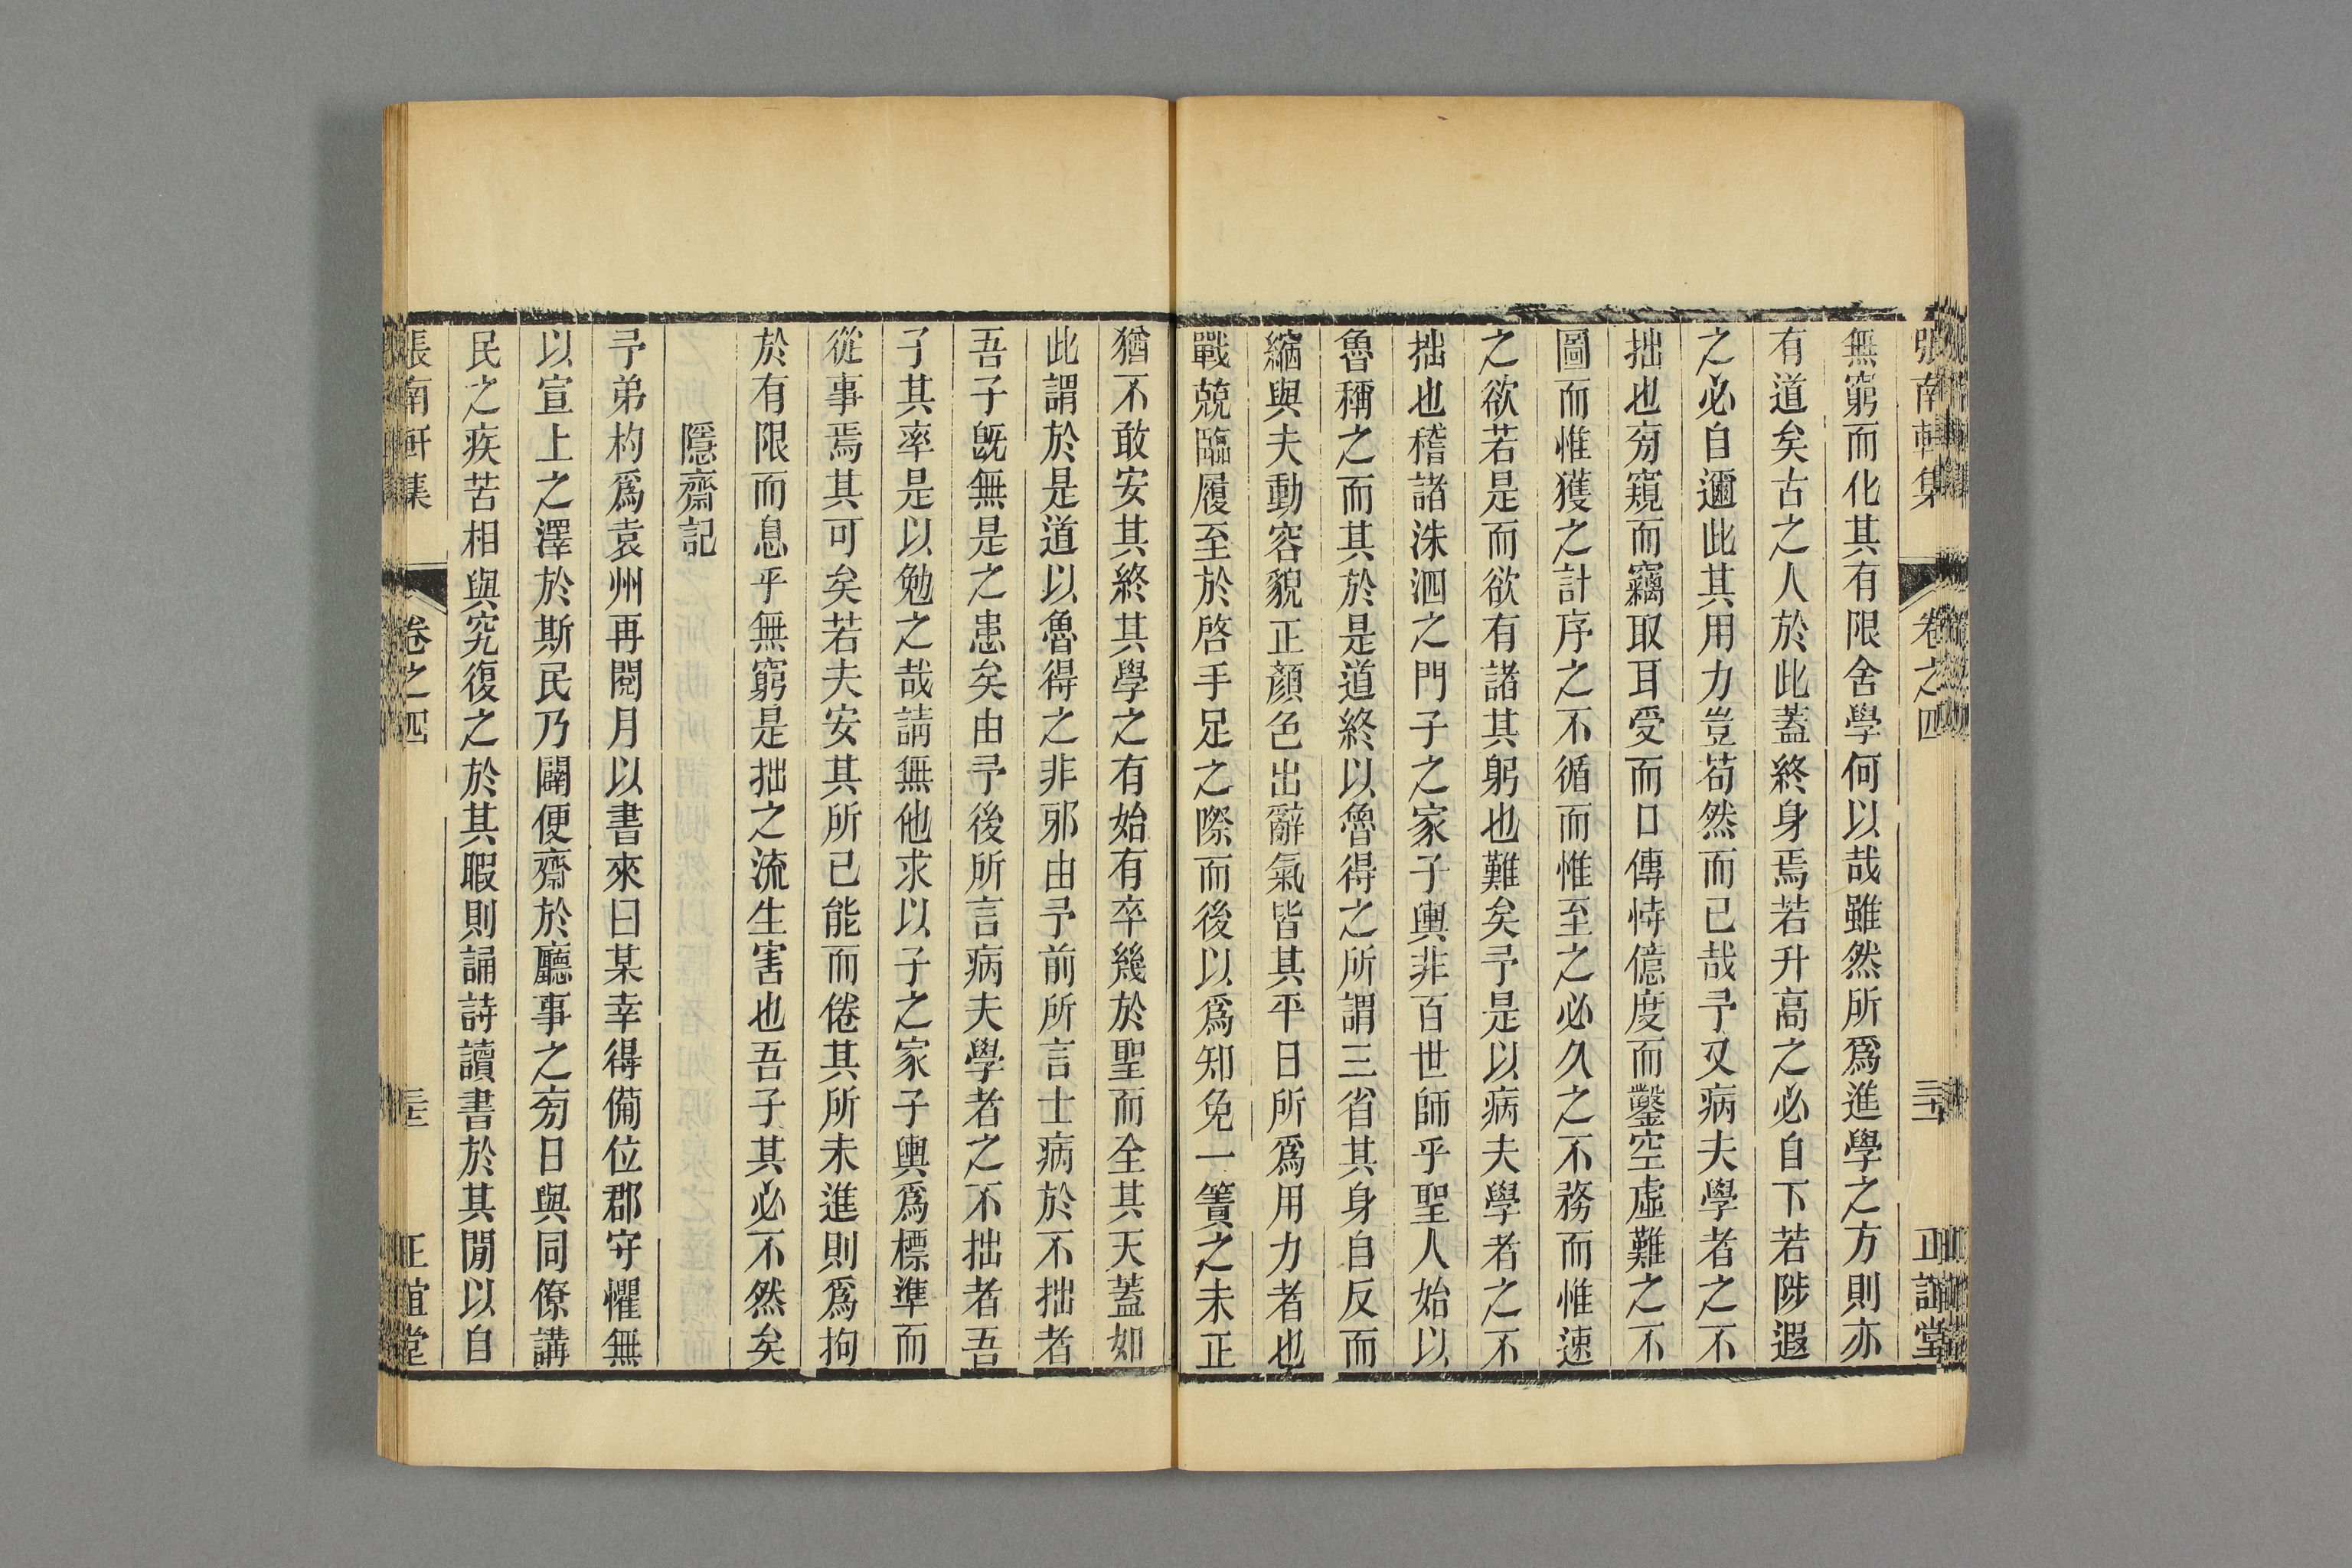 張南軒集 卷之四 三十 正誼堂
無窮而化其有限舍學何以哉雖然所爲進學之方則亦
有道矣古之人於此蓋終身焉若升高之必自下若陟遐
之必自邇此其用力豈苟然而已哉予又病夫學者之不
拙也旁窺而竊取耳受而口傳恃億度而鑿空虛難之不
圖而惟獲之計序之不循而惟至之必久之不務而惟速
之欲若是而欲有諸其躬也難矣予是以病夫學者之不
拙也稽諸洙泗之門子之家子輿非百世師乎聖人始以
魯稱之而其於是道終以魯得之所謂三省其身自反而
縮與夫動容貌正顏色出辭氣皆其平日所爲用力者也
戰兢臨履至於啓手足之際而後以爲知免一簀之未正
猶不敢安其終其學之有始有卒幾於聖而全其天蓋如
此謂於是道以魯得之非邪由予前所言士病於不拙者
吾子旣無是之患矣由予後所言病夫學者之不拙者吾
子其率是以勉之哉請無他求以子之家子輿爲標準而
從事焉其可矣若夫安其所已能而倦其所未進則爲拘
於有限而息乎無窮是拙之流生害也吾子其必不然矣
隱齋記
予弟杓爲袁州再閱月以書來曰某幸得備位郡守懼無
以宣上之澤於斯民乃闢便齋於廳事之旁日與同僚講
民之疾苦相與究復之於其暇則誦詩讀書於其閒以自
張南軒集 卷之四 正誼堂